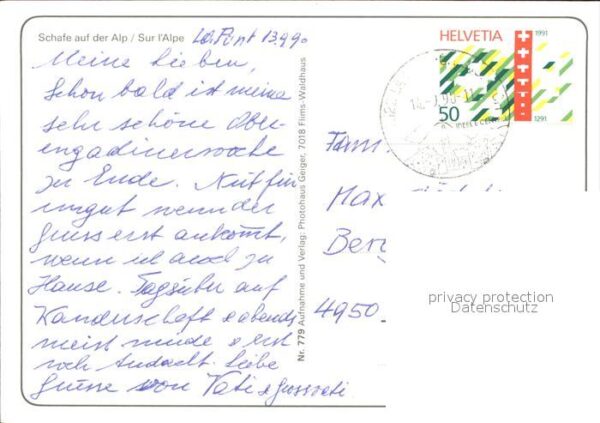 Schafe auf der Alp / Sur l'Alpe
La Punt 13.9.90
Meine Lieben,
Schon bald ist meine
sehr schöne Ober-
engadinerwoche
zu Ende. Nüt für
ungut wenn der
Gruss erst ankommt,
wenn ich auch zu
Hause. Tagsüber auf
Wanderschaft & abends
meist müde & erst
noch Andacht. Liebe
Grüsse von Vati & Grossvati
Nr. 779 Aufnahme und Verlag: Photohaus Geiger, 7018 Flims-Waldhaus
HELVETIA
1991
50
1291
Fam.
Max
4950
privacy protection
Datenschutz